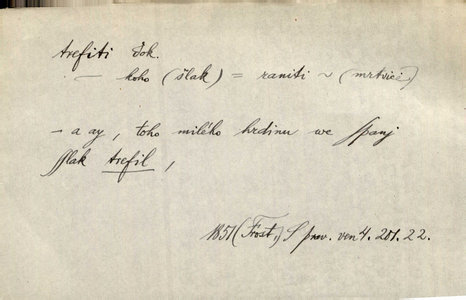 trefiti dok.
— koho (šlak) = raniti ~ (mrtvicí)
– a ay, toho milého hrdinu we Spanj
sslak trefil,
1851 (Frost,) S prav. ven 4. 201. 22.